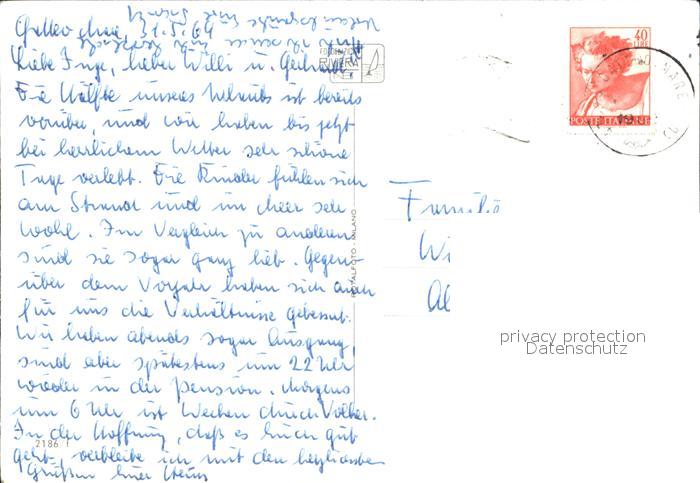 31.5.64
Liebe Inge, lieber Willi u. Gerhard!
Die Hälfte unseres Urlaubs ist bereits
vorüber, und wir haben bis jetzt
bei herrlichem Wetter sehr schöne
Tage verlebt. Die Kinder fühlen sich
am Strand und im Meer sehr
wohl. Im Vergleich zu anderen
sind sie sogar ganz lieb. Gegen-
über dem Vorjahr haben sich auch
für uns die Verhältnisse gebessert.
Wir haben abends sogar Ausgang,
sind aber spätestens um 22 Uhr
wieder in der Pension. Morgens
um 6 Uhr ist Wecken durch Volker.
In der Hoffnung, daß es Euch gut
geht, verbleibe ich mit den herzlichsten
Grüßen Euer
2186
FOTOEDIZIONI
RIVIERA
MILANO
40
LIRE
POSTE ITALIANE
MARE
Familie
Wi
Al
privacy protection
Datenschutz